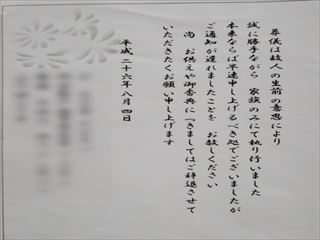 葬儀は故人の生前の意思により
誠に勝手ながら　家族のみにて執り行いました
本来ならば早速申し上げるべき処でございましたが
ご通知が遅れましたことを　お赦しください
尚　お供えや御香典につきましてはご辞退させて
いただきたくお願い申し上げます
平成二十六年八月四日